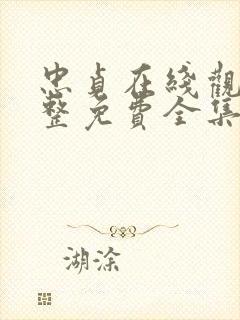 忠貞在綫觀
整免費全集
湖涂